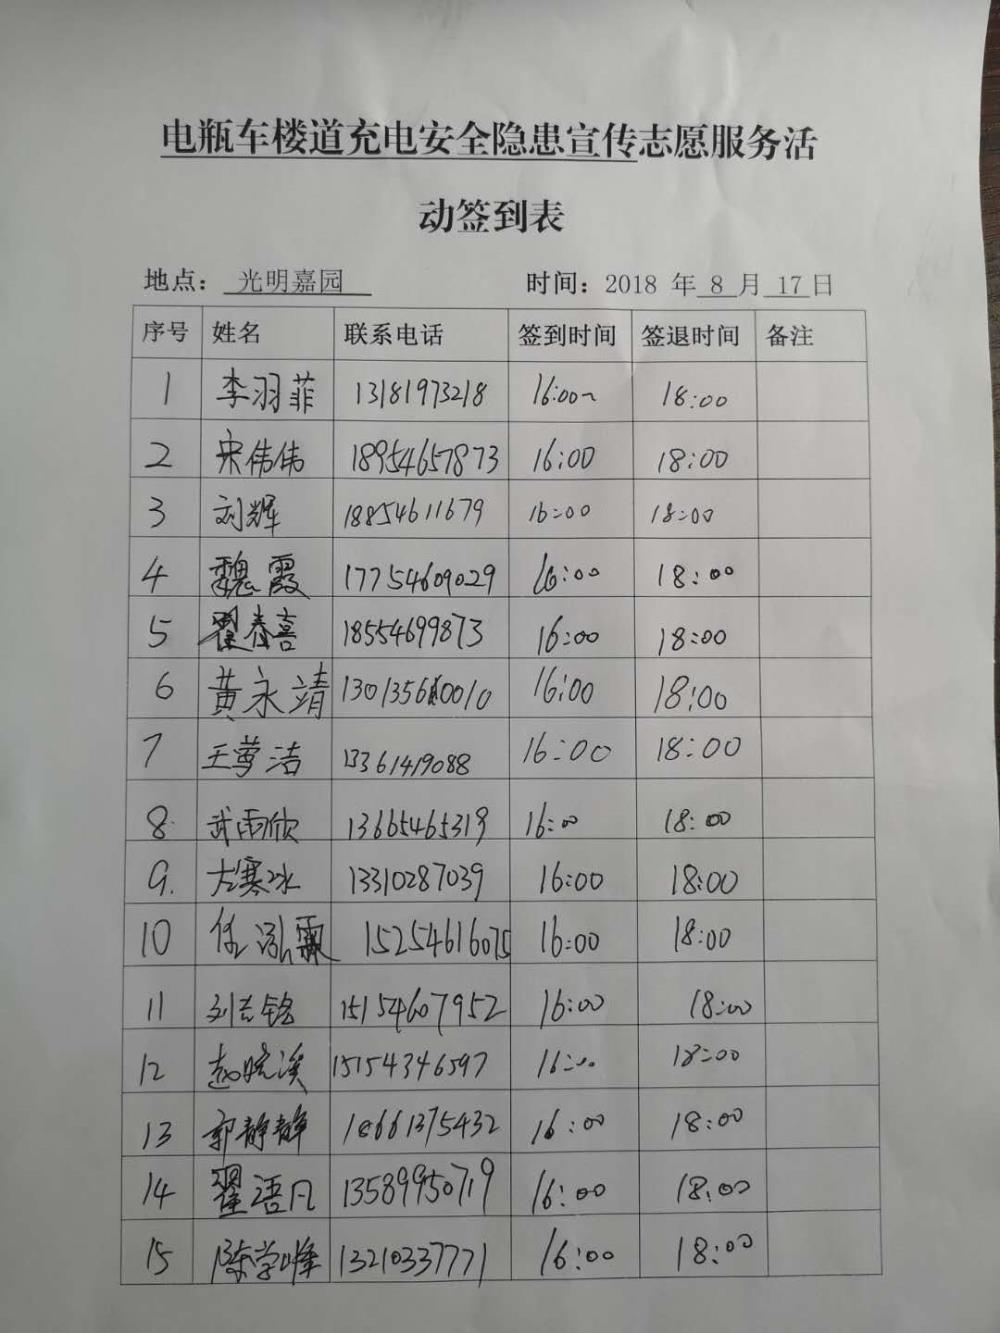 电瓶车楼道充电安全隐患宣传志愿服务活
动签到表
地点： 光明嘉园 时间：2018 年 8 月 17 日
序号 姓名 联系电话 签到时间 签退时间 备注
1 李羽菲 13181973218 16:00~ 18:00
2 宋伟伟 18954657873 16:00 18:00
3 刘辉 18854611679 16:00 18:00
4 魏霞 17754609029 16:00 18:00
5 翟春喜 18554699873 16:00 18:00
6 黄永靖 16:00 18:00
7 王梦洁 13361419088 16:00 18:00
8 武雨欣 13665465319 16:00 18:00
9. 寒冰 13310287039 16:00 18:00
10 任泓霖 15254616075 16:00 18:00
11 刘志铭 15154607952 16:00 18:00
12 赵晓溪 15154346597 16:00 18:00
13 郭静静 18661375432 16:00 18:00
14 翟语凡 13589950719 16:00 18:00
15 陈学峰 13210337771 16:00 18:00